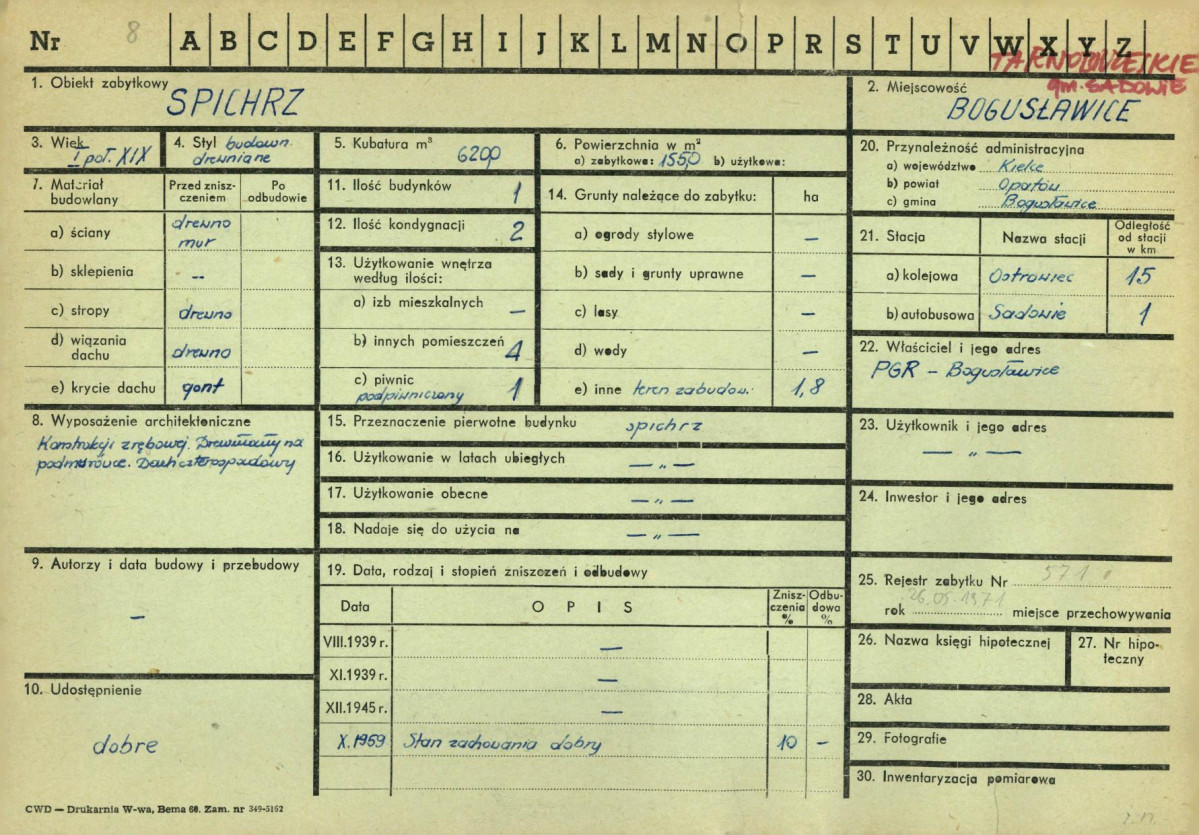 Nr 8 A B C D E F G H I J K L M N O P R S T U V W X Y Z
gm. SADOWIE
1. Obiekt zabytkowy
SPICHRZ
2. Miejscowość
BOGUSŁAWICE
3. Wiek
I poł. XIX
4. Styl budown.
drewniane
5. Kubatura m³
6200
6. Powierzchnia w m²
a) zabytkowa: 1550 b) użytkowa:
7. Materiał budowlany
Przed zniszczeniem
Po odbudowie
a) ściany drewno
mur
b) sklepienia --
c) stropy drewno
d) wiązania dachu drewno
e) krycie dachu gont
8. Wyposażenie architektoniczne
Konstrukcji zrębowej. Drewniany na
podmurówce. Dach czterospadowy
9. Autorzy i data budowy i przebudowy
—
10. Udostępnienie
dobre
11. Ilość budynków 1
12. Ilość kondygnacji 2
13. Użytkowanie wnętrza
według ilości:
a) izb mieszkalnych —
b) innych pomieszczeń 4
c) piwnic
podpiwniczony 1
14. Grunty należące do zabytku: ha
a) ogrody stylowe —
b) sady i grunty uprawne —
c) lasy —
d) wody —
e) inne teren zabudow. 1,8
15. Przeznaczenie pierwotne budynku spichrz
16. Użytkowanie w latach ubiegłych — „ —
17. Użytkowanie obecne — „ —
18. Nadaje się do użycia na — „ —
19. Data, rodzaj i stopień zniszczeń i odbudowy
Data OPIS Zniszczenia % Odbudowa %
VIII.1939 r. —
XI.1939 r. —
XII.1945 r. —
X.1959 Stan zachowania dobry 10 —
20. Przynależność administracyjna
a) województwo Kielce
b) powiat Opatów
c) gmina Bogusławice
21. Stacja Nazwa stacji Odległość od stacji w km
a) kolejowa Ostrowiec 15
b) autobusowa Sadowie 1
22. Właściciel i jego adres
PGR – Bogusławice
23. Użytkownik i jego adres
— „ —
24. Inwestor i jego adres
25. Rejestr zabytku Nr 571
rok 26.05.1971 miejsce przechowywania
26. Nazwa księgi hipotecznej
27. Nr hipoteczny
28. Akta
29. Fotografie
30. Inwentaryzacja pomiarowa
CWD — Drukarnia W-wa, Bema 60. Zam. nr 349-5162